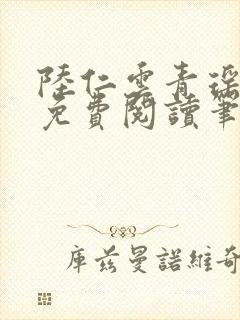 陸仁雲青瑶
免費閱讀筆
庫茲曼諾維奇